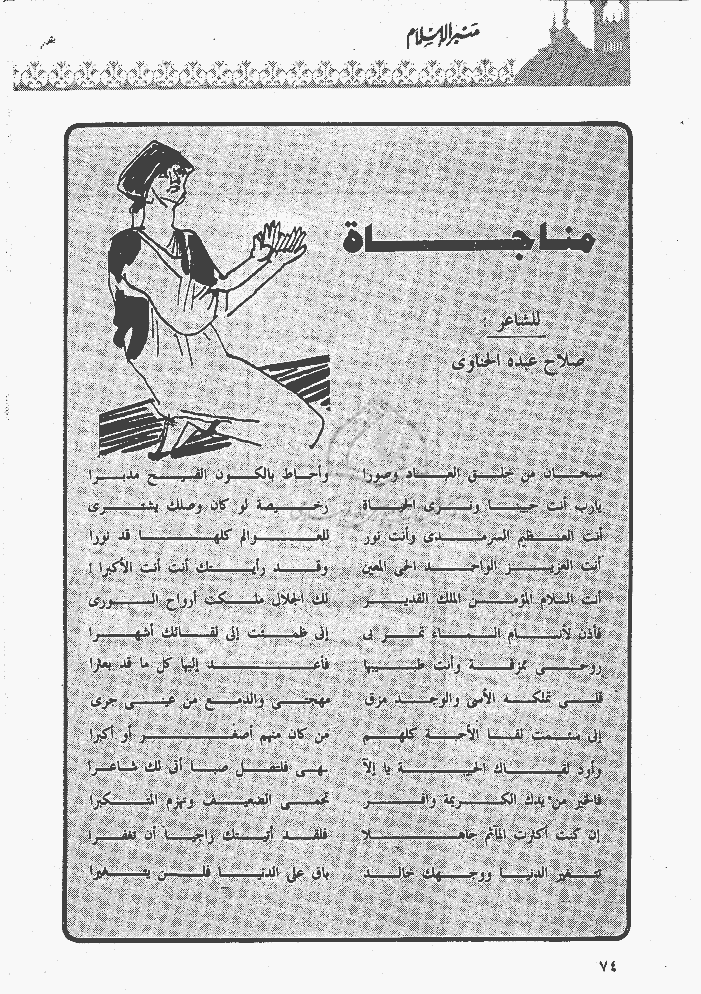 منبر الإسلام
يقدم
مناجاة
للشاعر :
صلاح عبده الحناوى
سبحان من خلق العباد وصورا وأحاط بالكون الفسيح مدبرا
يارب أنت حبيبنا ونرى الحياة رخيصة لو كان وصلك يشترى
أنت العظيم السرمدى وأنت نور للعوالم كلها قد نورا
أنت العزيز الواحد الحى المعين وقد رأيتك أنت أنت الأكبرا !
أنت السلام المؤمن الملك القدير لك الجلال ملكت أرواح الورى
فأذن لأنسام السماء تمر بى إنى ظمئت إلى لقائك أشهرا
روحى ممزقة وأنت طبيبها فأعد إليها كل ما قد بعثرا
قلبى تملكه الأسى والوجد مزق مهجتى والدمع من عينى جرى
إنى سئمت لقا الأحبة كلهم من كان منهم أصغر أو أكبرا
وأود لقاك الحبيبة يا إلا هى فلتقل صبا أتى لك شاعرا
فالخير من يدك الكريمة وافر تحمى الضعيف وتهزم المتكبرا
إن كنت أكثرت المآثم جاهلا فلقد أتيتك راجيا أن تغفرا
تتغير الدنيا ووجهك خالد باق على الدنيا فلن يتغيرا
٧٤